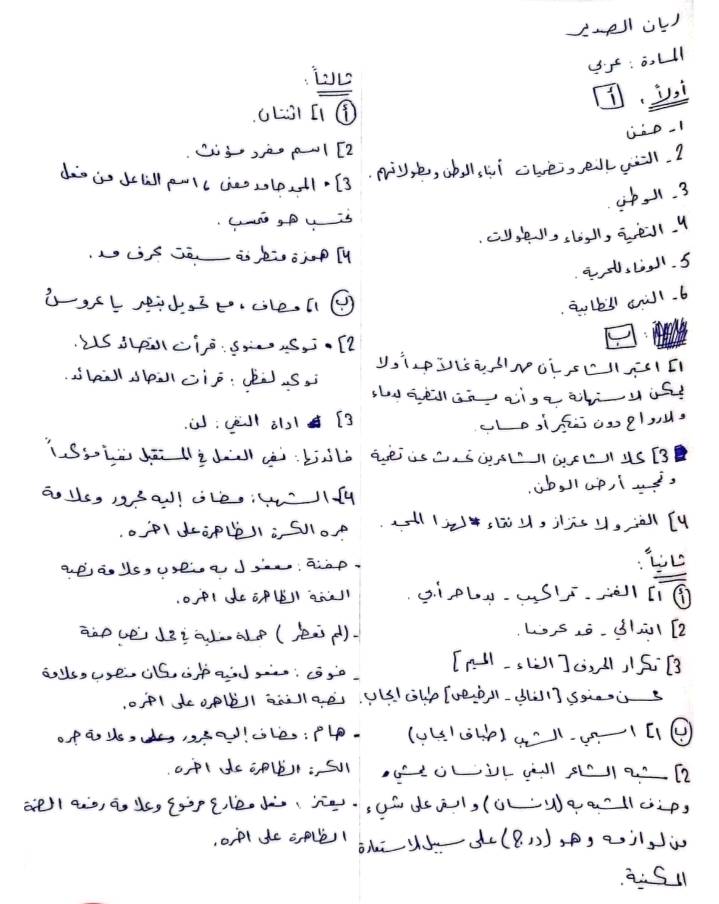 ريان الصدير
المادة : عربي
أولاً : أ
1- صفن
2- التغني بالنصر وتضحيات أبناء الوطن وبطولاتهم.
3- الوطن.
4- التضحية والوفاء والبطولات.
5- الوفاء للحرية.
6- النص الخطابية.
ب :
1] اعتبر الشاعر بأن مهر الحرية غالٍ جداً ولا
يمكن الاستهانة به وأنه يستحق التضحية بدماء
والارواح دون تفكير أو حساب.
3] كلا الشاعرين الشاعرين تحدث عن تضحية
وتمجيد أرض الوطن.
4] الفخر والاعتزاز والانتقاء لهذا المجد.
ثانياً :
أ 1] الفخر - تراكيب - بدماء أبي.
2] ابتدائي - قد عرفنا.
3] تكرار الحروف [الفاء - الميم]
محسن معنوي [الغالي - الرخيص] طباق إيجاب.
ب 1] اسمي - السهب (طباق ايجاب)
2] شبه الشاعر البغي بالإنسان يمشي.
وحذف المشبه به (الإنسان) وابقى على شيء
من لوازمه وهو (درج) على سبيل الاستعارة
المكنية.
ثالثاً :
أ 1] اثنتان.
2] اسم مفرد مؤنث.
3] اسم فاعل من فعل
محتسب هو حسب.
4] همزة متطرفة سبقت بحرف مد.
ب 1] مضاف
2] توكيد معنوي. قرأت القصائد كلها.
توكيد لفظي : قرأت القصائد القصائد.
3] اداة النفي : لن.
فائدتها : نفي الفعل في المستقبل نفياً مؤكداً
4] الشهبا : مضاف إليه مجرور وعلامة
جره الكسرة الظاهرة على آخره.
- ضفة : مفعول به منصوب وعلامة نصبه
الفتحة الظاهرة على اخره.
- (لم تفطر) جملة فعلية في محل نصب صفة
- فوق : مفعول فيه ظرف مكان منصوب وعلامة
نصبه الفتحة الظاهرة على آخره.
- هام : مضاف إليه مجرور وعلامة جره
الكسرة الظاهرة على آخره.
- يعتز : فعل مضارع مرفوع وعلامة رفعه الضمة
الظاهرة على آخره.